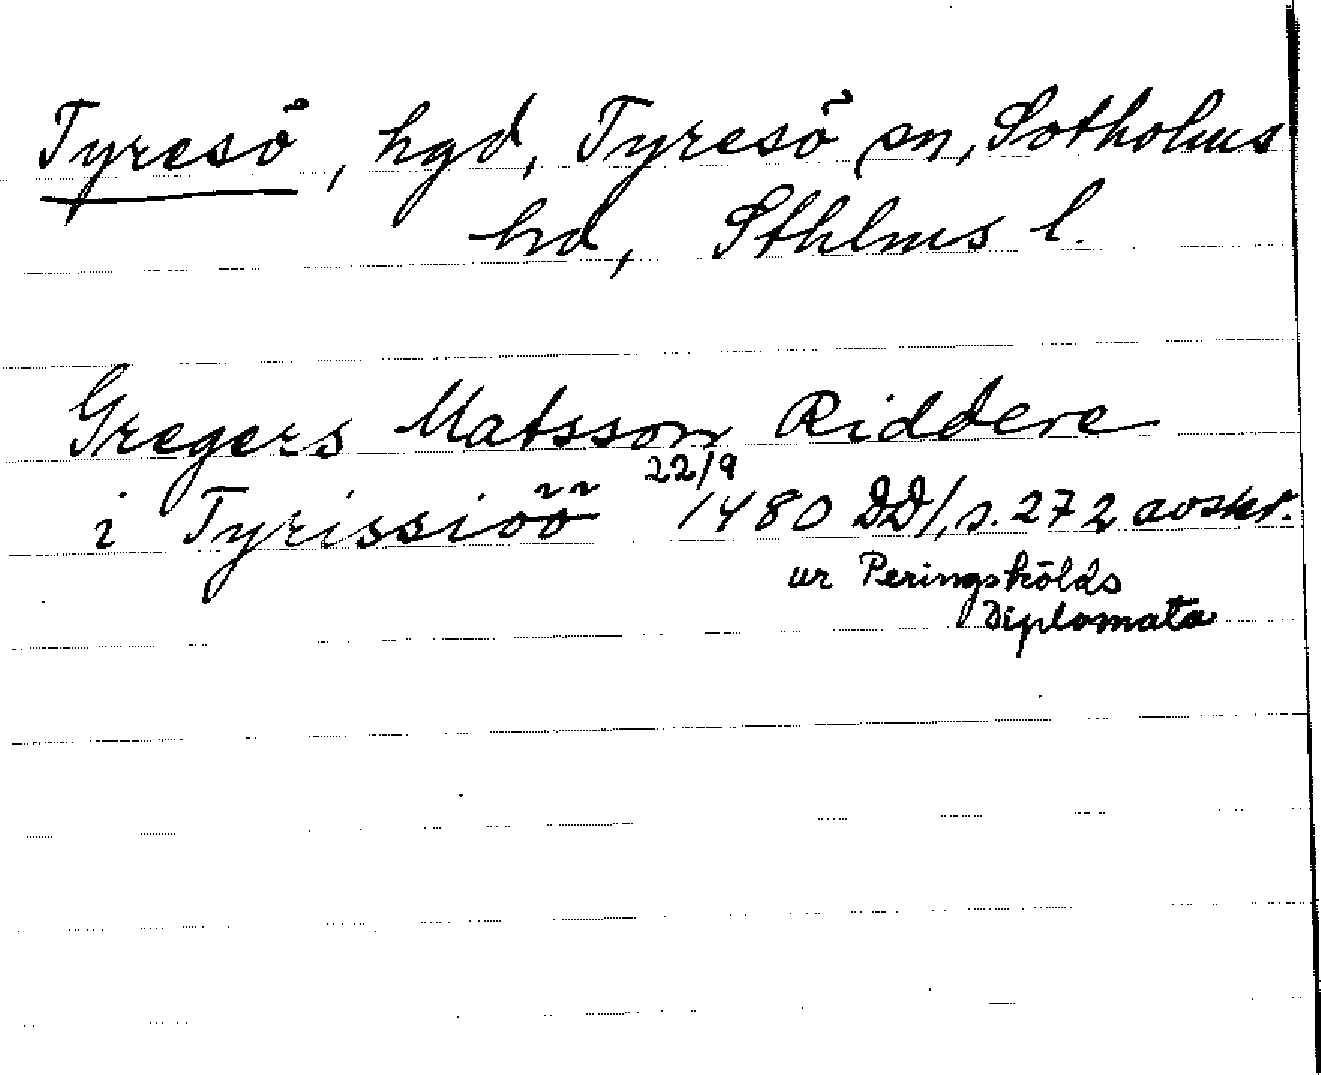 Tyresö, hgd, Tyresö sn, Sotholms
hd, Sthlms l.
Gregers Matsson Riddere
i Tyrissiöö 22/9 1480 DD1, s. 272 avskr.
ur Peringskölds
Diplomata